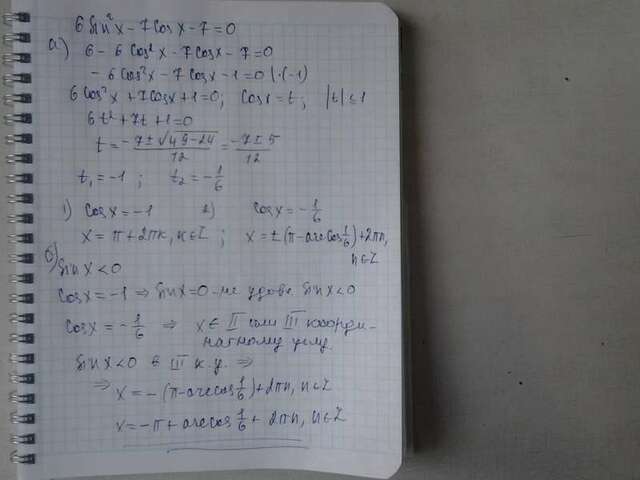 6 sin²x - 7cosx - 7 = 0
а) 6 - 6cos²x - 7cosx - 7 = 0
- 6cos²x - 7cosx - 1 = 0 | ·(-1)
6cos²x + 7cosx + 1 = 0; cosx = t; |t| ≤ 1
6t² + 7t + 1 = 0
t = (-7 ± √(49-24))/12 = (-7 ± 5)/12
t₁ = -1; t₂ = -1/6
1) cosx = -1 2) cosx = -1/6
x = π + 2πк, к∈Z; x = ±(π - arccos 1/6) + 2πn, n∈Z
б) sinx < 0
cosx = -1 ⇒ sinx = 0 - не удовл. sinx < 0
cosx = -1/6 ⇒ x ∈ II или III коорди-
натному углу.
sinx < 0 в III к.у. ⇒
⇒ x = -(π - arccos 1/6) + 2πn, n∈Z
x = -π + arccos 1/6 + 2πn, n∈Z